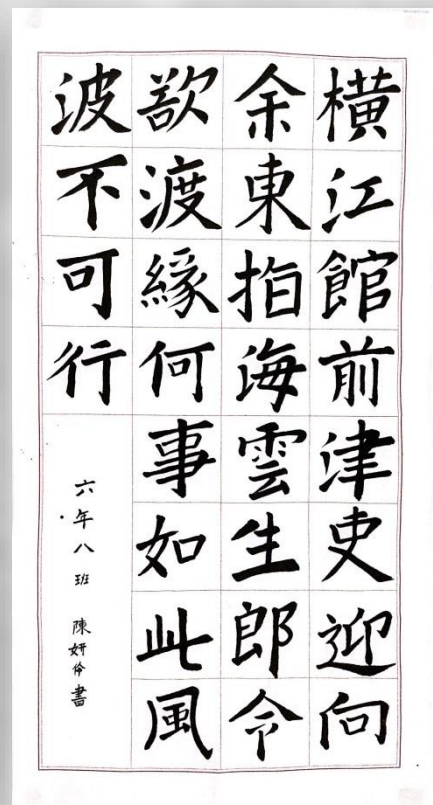 橫江館前津吏迎向
余東指海雲生郎今
欲渡緣何事如此風
波不可行
六年八班 陳妍伶書